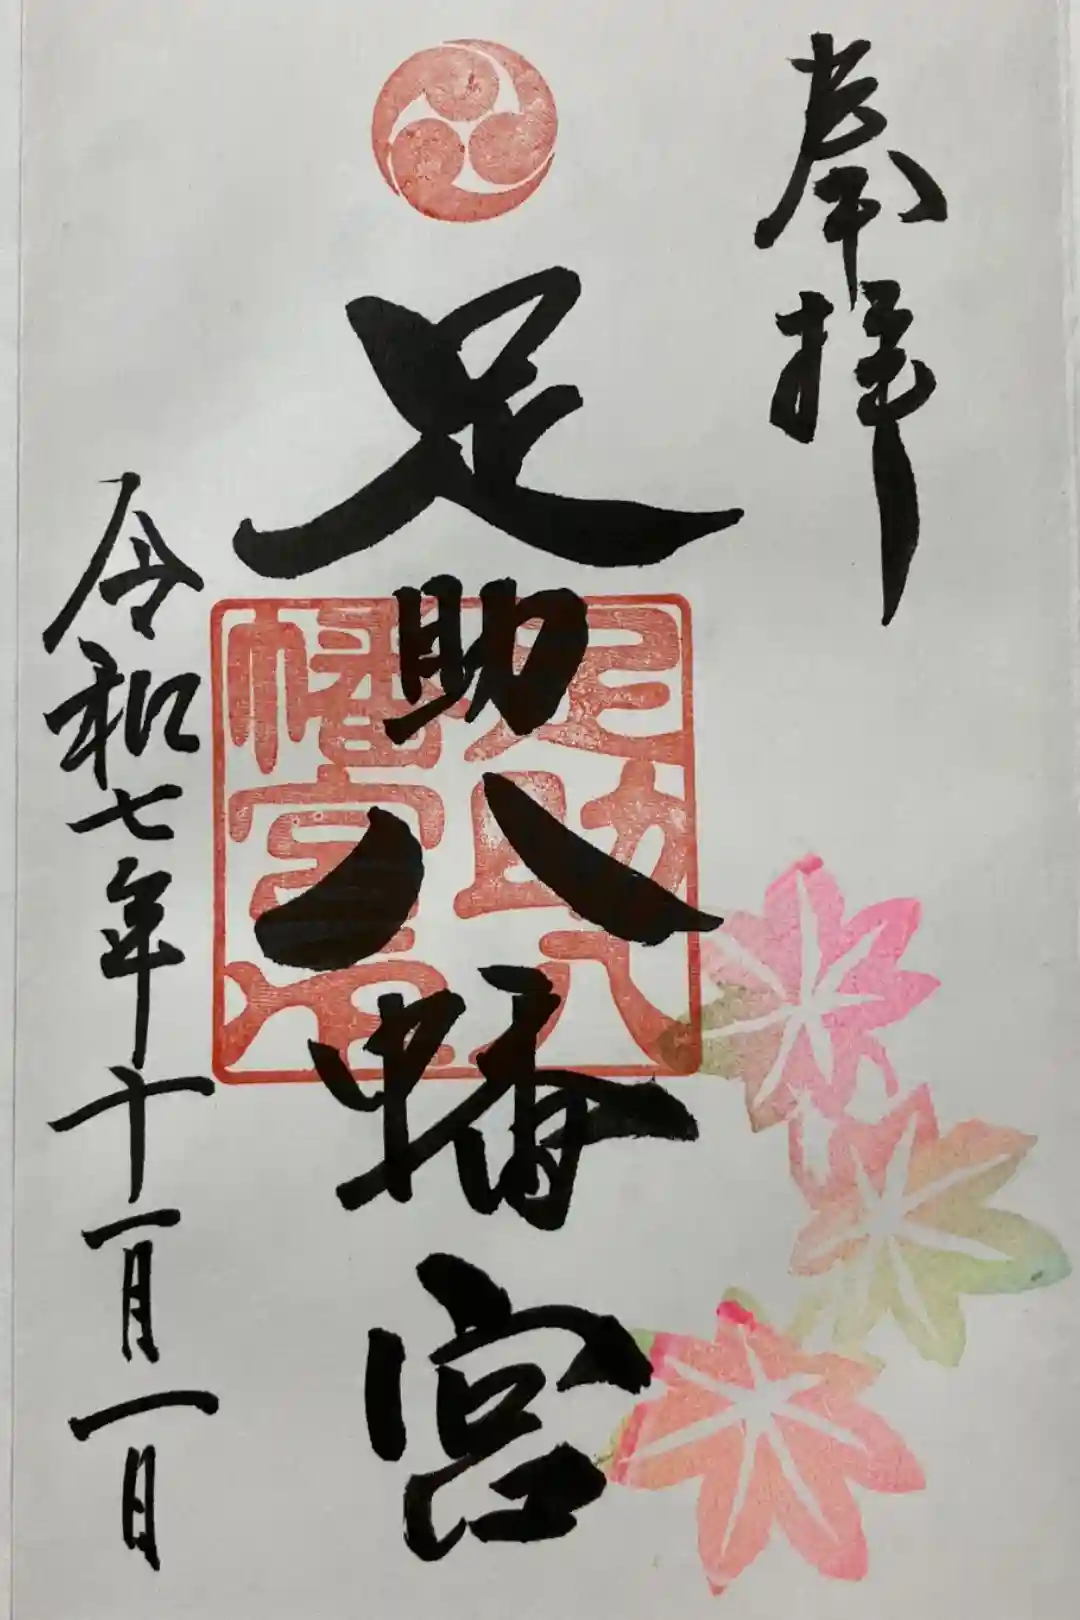 奉拝
足助八幡宮
足助八幡宮
令和七年十一月一日